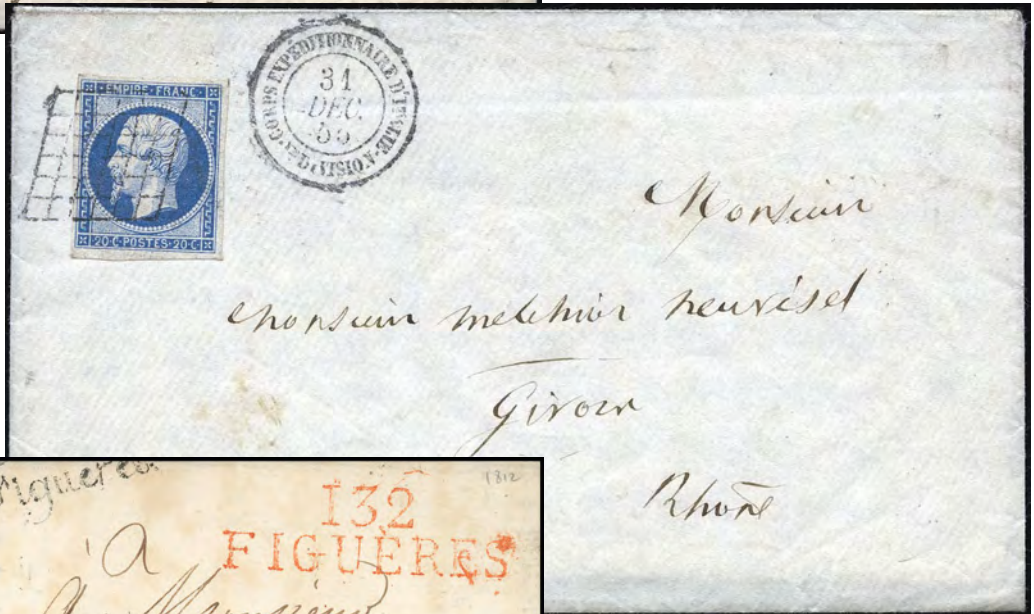 EMPIRE·FRANC·
20·C·POSTES·20·C
CORPS EXPÉDITIONNAIRE D'ITALIE
31
DEC.
55
Monsieur
Monsieur melchior neuvesel
Givors
Rhône
Figueres
1812
132
FIGUÈRES
à
Monsieur